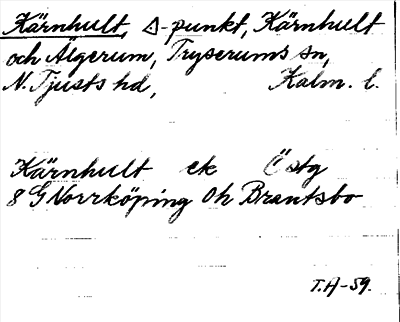 Kärnhult, △-punkt, Kärnhult
och Älgerum, Tryserums sn,
N. Tjusts hd, Kalm. l.
Kärnhult ek Östg
8 G Norrköping Oh Brantsbo
T.A-59.